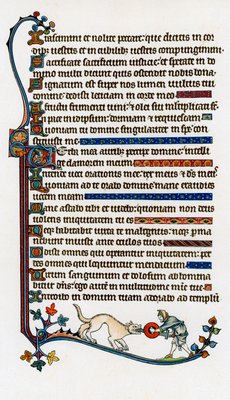 Irascimini et nolite peccare: que dicitis in cor
dibus uestris et in cubilibus uestris compungimini
Sacrificate sacrificium iusticie, et sperate in do
mino multi dicunt quis ostendit nobis bona
Signatum est super nos lumen uultus tui
domine: dedisti leticiam in corde meo
A fructu frumenti uini: et olei sui multiplicati st
In pace in idipsum: dormiam et requiescam
Quoniam tu domine singulariter in spe con
stituisti me
Verba mea auribus percipe domine: intelli
ge clamorem meum
Intende uoci orationis mee: rex meus et ds ms
Quoniam ad te orabo domine: mane exaudies
uocem meam
Mane astabo tibi et uidebo: quoniam non deus
uolens iniquitatem tu es
Neqz habitabit iuxta te malignus: neqz pma
nebunt iniusti ante oculos tuos
Odisti omnes qui operantur iniquitatem: per
des omnes qui loquuntur mendacium
Virum sanguinum et dolosum abhomi
nabitur dns: ego autem in multitudine mie tue
Introibo in domum tuam: adorabo ad templu